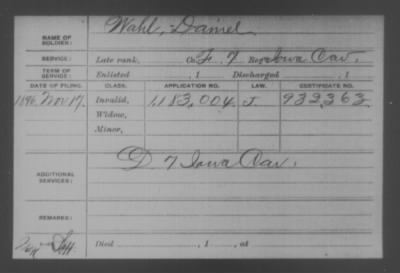 NAME OF SOLDIER: Wahl, Daniel
SERVICE: Late rank, Co. F. 7 Reg't Iowa Cav.
TERM OF SERVICE: Enlisted , 1 Discharged , 1
DATE OF FILING. CLASS. APPLICATION NO. LAW. CERTIFICATE NO.
1896. Nov 17. Invalid, 1,183,004 J. 932,363
Widow,
Minor,
ADDITIONAL SERVICES: D 7 Iowa Cav.
REMARKS:
Died , 1 , at